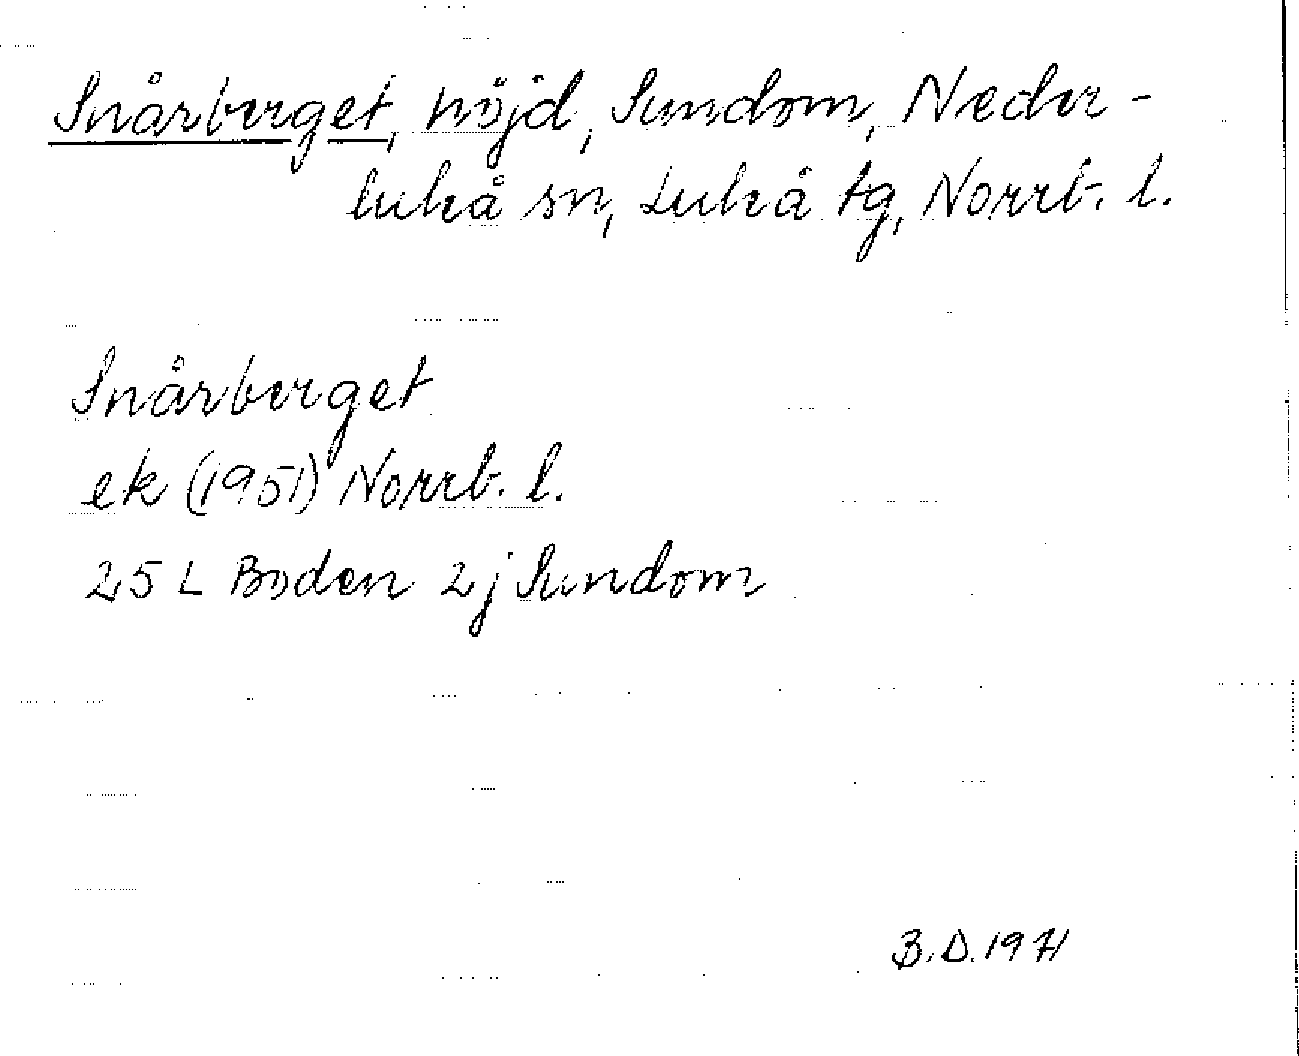 Snårberget, höjd, Sundom, Neder-
luleå sn, Luleå tg, Norrb. l.
Snårberget
ek (1951) Norrb. l.
25 L Boden 2j Sundom
B.D. 1971